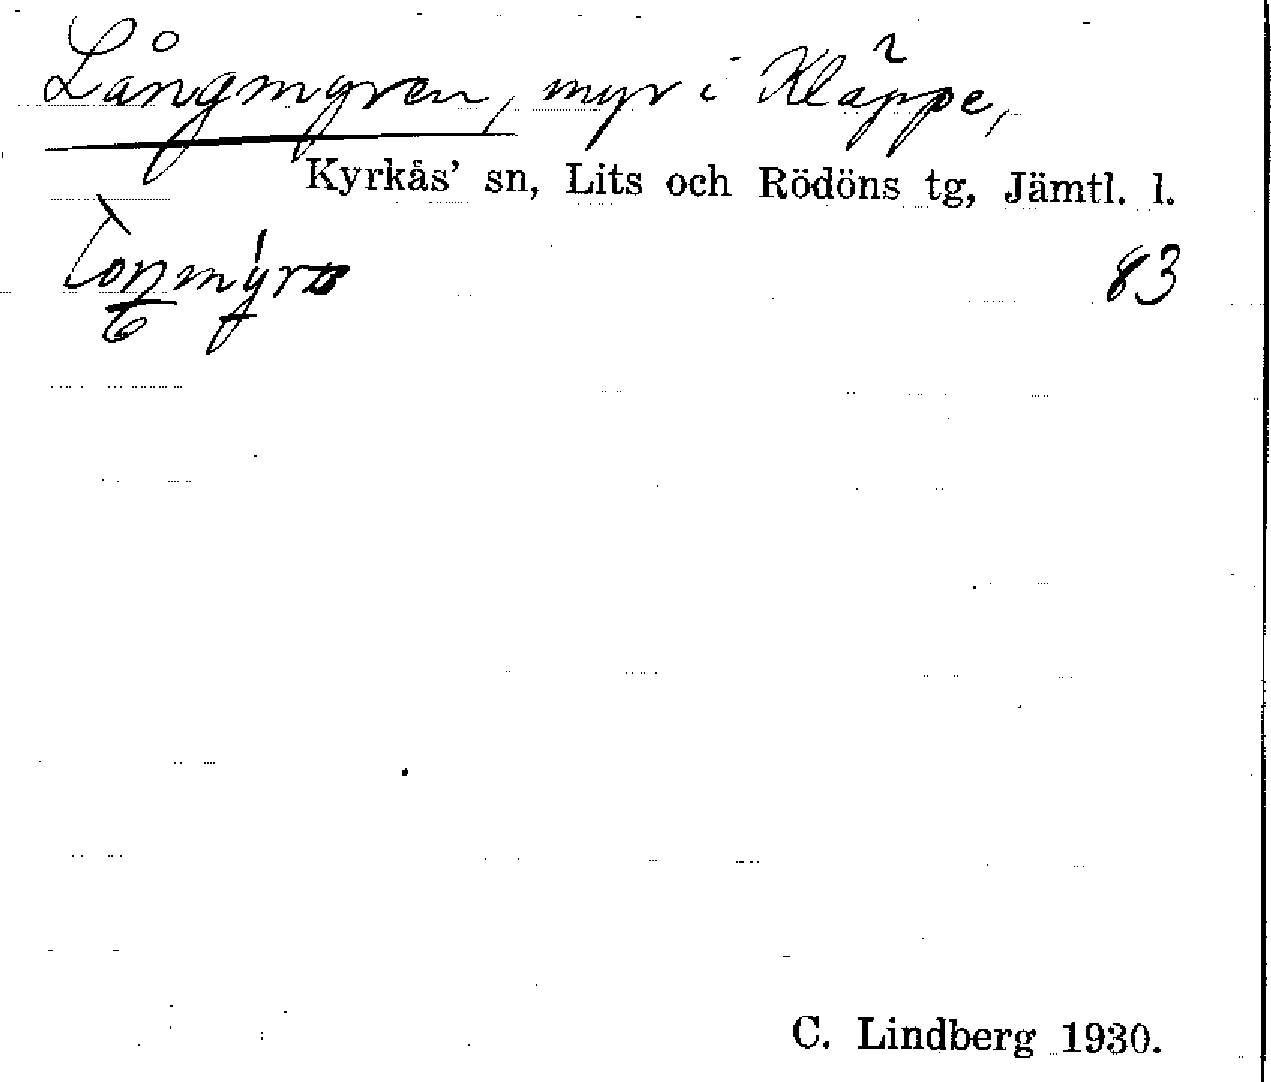 Långmyren, myr i Kläppe,
Kyrkås' sn, Lits och Rödöns tg, Jämtl. l.
83
C. Lindberg 1930.